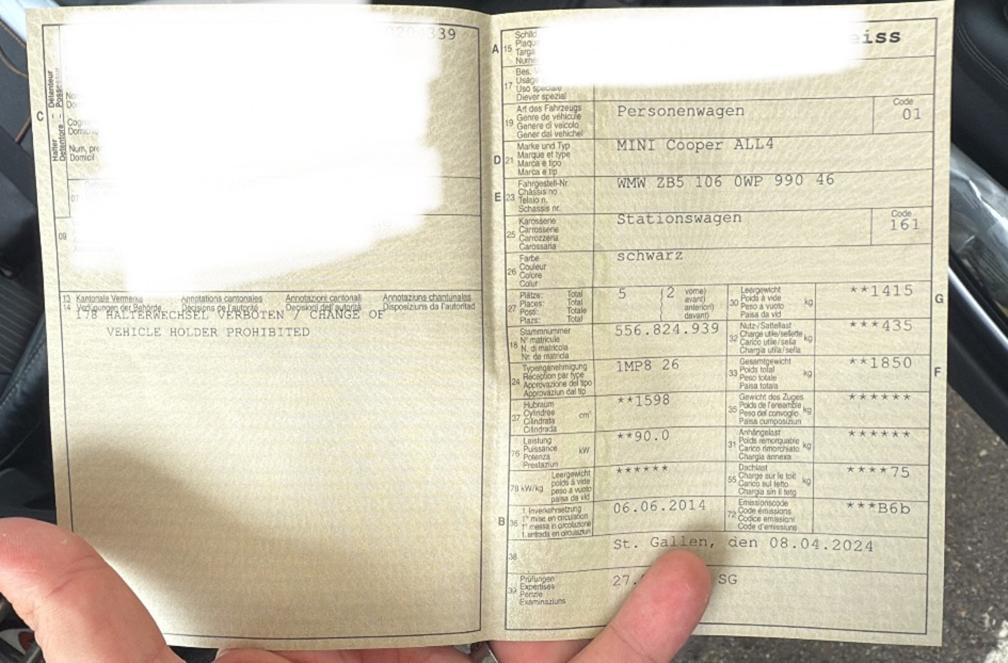 339
C
Halter – Détenteur
Detentore – Possessur
Num, pre
Domicil
07
09
13 Kantonale Vermerke Annotations cantonales Annotazioni cantonali Annotaziuns chantunalas
14 Verfügungen der Behörde Décisions de l'autorité Decisioni dell'autorità Disposiziuns da l'autoritad
178 HALTERWECHSEL VERBOTEN / CHANGE OF
VEHICLE HOLDER PROHIBITED
A 15 Schild
Targa
eiss
17
Uso speciale
Diever spezial
19 Art des Fahrzeugs
Genre de véhicule
Genere di veicolo
Gener dal vehichel
Personenwagen
Code
01
D 21 Marke und Typ
Marque et type
Marca e tipo
Marca e tip
MINI Cooper ALL4
E 23 Fahrgestell-Nr.
Châssis no
Telaio n.
Schassis nr.
WMW ZB5 106 0WP 990 46
25 Karosserie
Carrosserie
Carrozzeria
Carossaria
Stationswagen
Code
161
26 Farbe
Couleur
Colore
Colur
schwarz
27 Plätze: Total
Places: Total
Posti: Totale
Plazs: Total
5 2 vorne)
avant)
anteriori)
davant)
30 Leergewicht
Poids à vide
Peso a vuoto
Paisa da vid
kg
**1415
G
18 Stammnummer
N° matricule
N. di matricola
Nr. da matricla
556.824.939
32 Nutz-/Sattellast
Charge utile/sellette
Carico utile/sella
Chargia utila/sella
kg
***435
24 Typengenehmigung
Réception par type
Approvazione del tipo
Approvaziun dal tip
1MP8 26
33 Gesamtgewicht
Poids total
Peso totale
Paisa totala
kg
**1850
F
37 Hubraum
Cylindrée
Cilindrata
Cilindrada
cm³
**1598
35 Gewicht des Zuges
Poids de l'ensemble
Peso del convoglio
Paisa cumposiziun
kg
******
76 Leistung
Puissance
Potenza
Prestaziun
kW
**90.0
31 Anhängelast
Poids remorquable
Carico rimorchiato
Chargia annexa
kg
******
78 kW/kg Leergewicht
poids à vide
peso a vuoto
paisa da vid
******
55 Dachlast
Charge sur le toit
Carico sul tetto
Chargia sin il tetg
kg
****75
B 36 1. Inverkehrsetzung
1re mise en circulation
1a messa in circolazione
1. entrada en circulaziun
06.06.2014
72 Emissionscode
Code émissions
Codice emissioni
Code d'emissiuns
***B6b
38
St. Gallen, den 08.04.2024
39 Prüfungen
Expertises
Perizie
Examinaziuns
27. SG